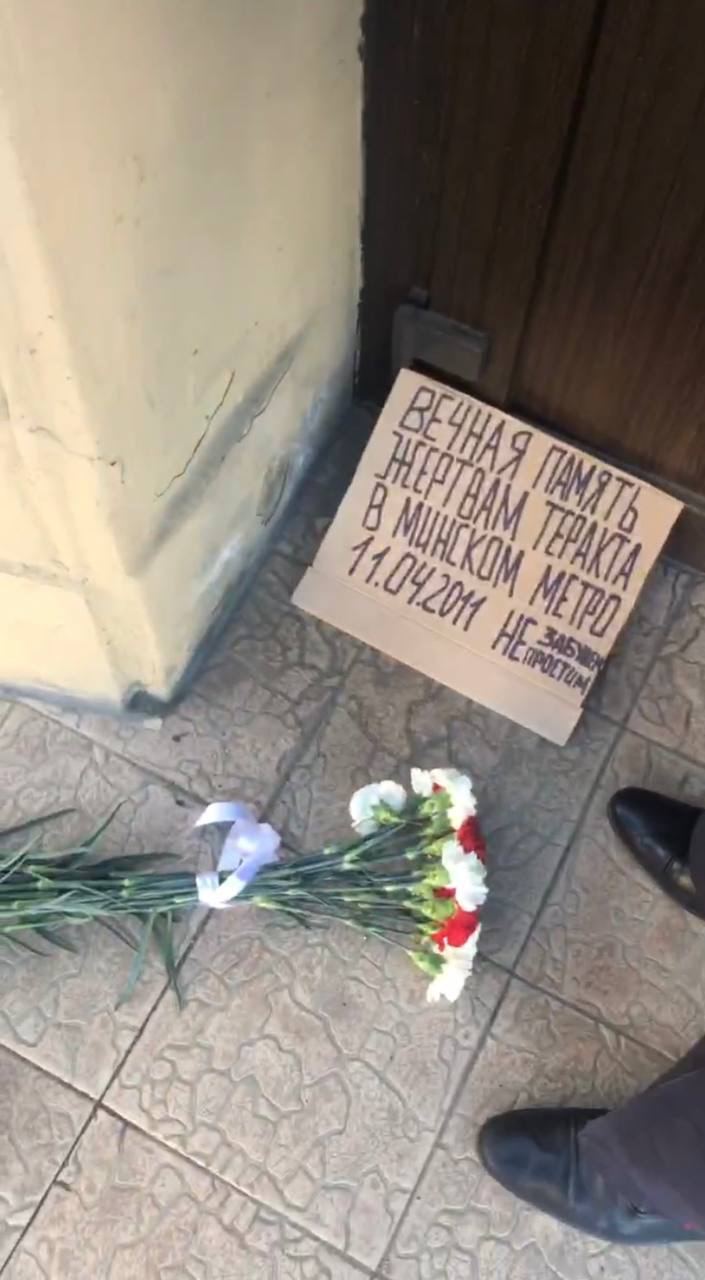 ВЕЧНАЯ ПАМЯТЬ
ЖЕРТВАМ ТЕРАКТА
В МИНСКОМ МЕТРО
11.04.2011
НЕ ЗАБУДЕМ
ПРОСТИМ